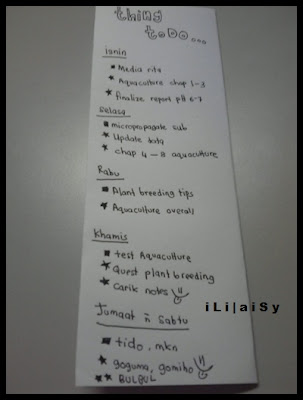 thing
to Do....
isnin
Media rita
Aquaculture chap 1-3
Finalise report pg 6-7
Selasa
micropropagate sub
Update data
chap 4 - 8 aquaculture
Rabu
Plant breeding tips
Aquaculture overall
Khamis
test Aquaculture
Quest plant breeding
Carik notes
Jumaat n Sabtu
tido, mkn
goguma, gomiho
BULBUL
iLi|aiSy